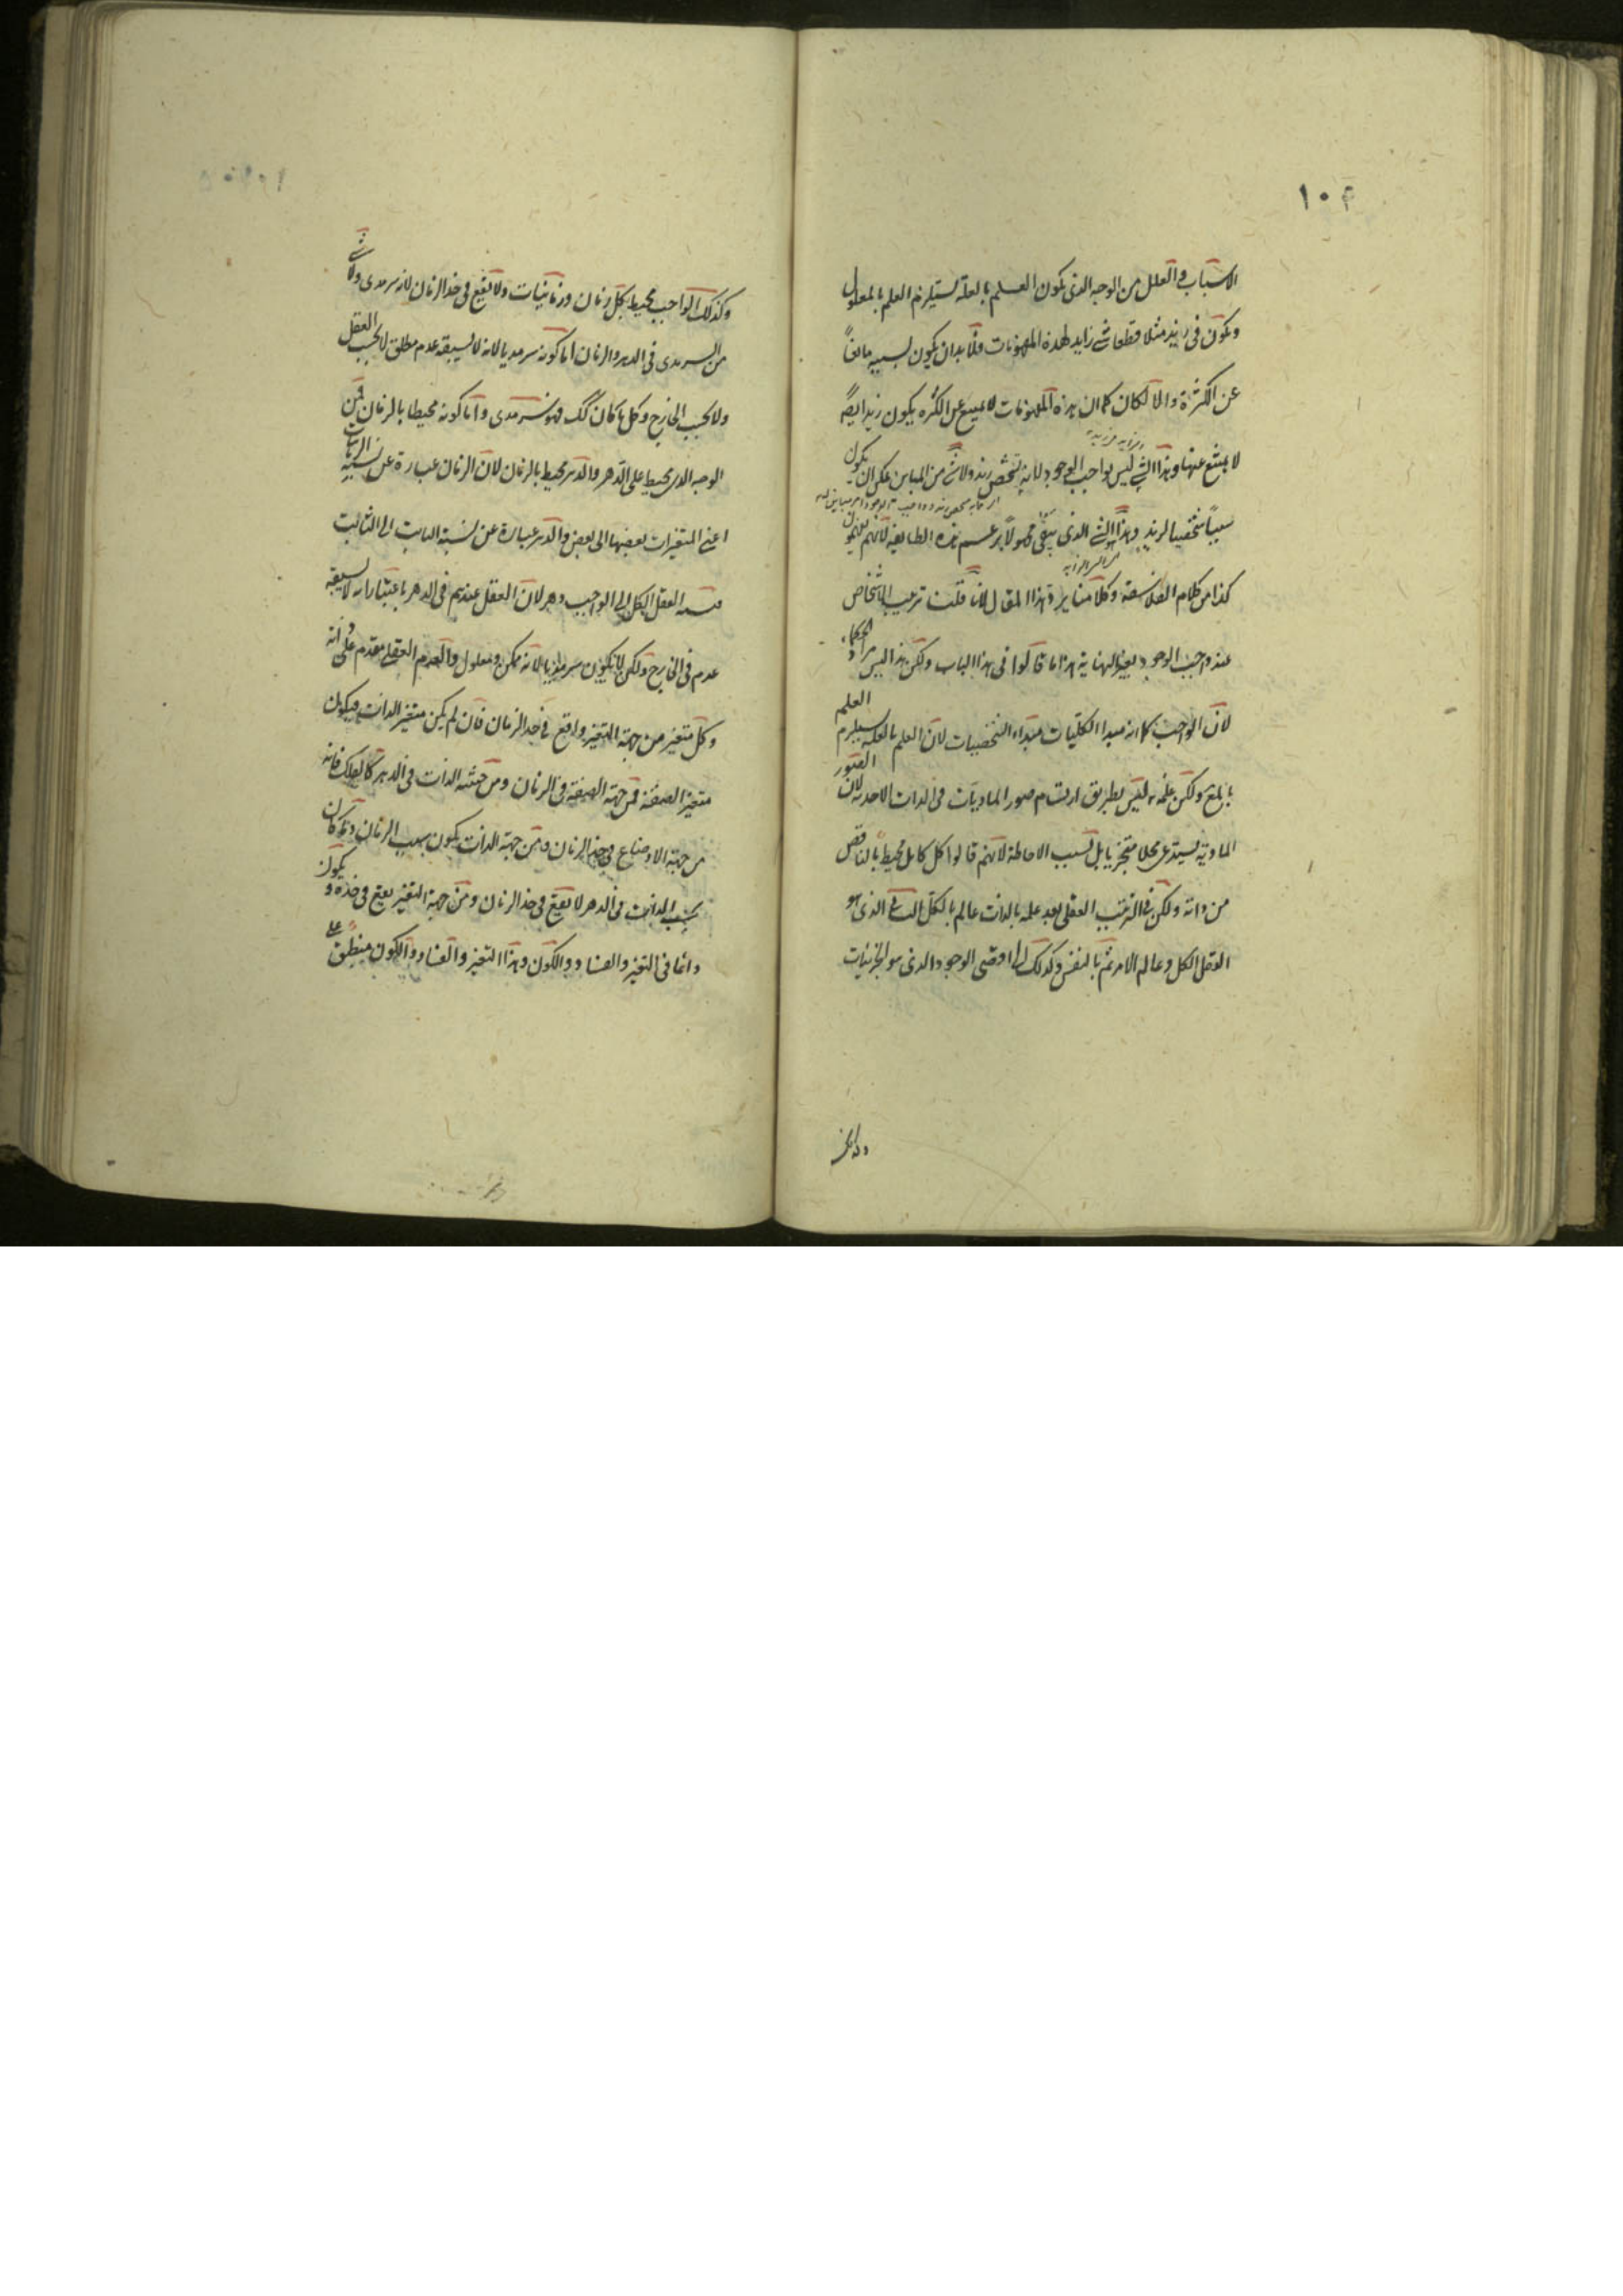 ١٠٤
الاسباب و العلل من الوجه الذى يكون العلم بالعلة يستلزم العلم بالمعلول
ويكون فى زيد مثلا قطعا شى زايد لهذه المفهومات فلابد ان يكون لسببه مانعاً
عن الكثرة والا لكان كما ان هذه المفهومات لا يمنع عن الكثره يكون زيد ايضاً
لا يمتنع عنها وهذا الشى ليس بواجب الوجود لانه تشخص زيد ولاشى من المباين يمكن ان يكون
سبباً شخصيا لزيد وهذا الشى الذى يبقى مجهولاً برعم هذه الطايفه لانهم يقولون
كذا من كلام الفلاسفة وكلامنا يرد هذا المقال لانا قلنا ترتيب الاشخاص
عند واجب الوجود بغير النهاية هذا ما قالوا فى هذا الباب ولكن هذا ليس مراد الحكماء
لان الواجب كما انه مبدا الكليات مبداء الشخصيات لان العلم بالعلة يستلزم العلم
بالمع ولكن علمه ليس بطريق ارتسام صور الماديات فى الذات الاحديه لان الصور
المادية يستدعى محلا متجزيا بل بسبب الاحاطة لانهم قالوا كل كامل محيط بالناقص
من ذاته ولكن فى الترتيب العقلى بعد علمه بالذات عالم بالكل الشى الذى هو
العقل الكل وعالم الامر ثم بالنفس وكذلك الى اقصى الوجود الذى هو الجزئيات
وكذلك الواجب محيط بكل زمان وزمانيات ولا يقع فى حد الزمان لانه سرمدى ولا شى
من السرمدى فى الدهر والزمان اما كونه سرمديا لانه لا يسبقه عدم مطلق لا بحسب العقل
ولا بحسب الخارج وكل ما كان كك فهو سرمدى واما كونه محيطا بالزمان فمن
الوجه الذى محيط على الدهر والدهر محيط بالزمان لان الزمان عبارة عن نسبة الزمانيات
اعنى المتغيرات بعضها الى بعض والدهر عبارة عن نسبة الثابت الى الثابت
نسبة العقل الكل الى الواجب دهر لان العقل عندهم فى الدهر باعتبار انه لا يسبقه
عدم فى الخارج ولكن لا يكون سرمديا لانه ممكن ومعلول والعدم العقلى مقدم على ذاته
وكل متغير من جهة التغير واقع فى حد الزمان فان لم يكن متغير الذات فيكون
متغير الصفة فمن جهة الصفة فى الزمان ومن حيثية الذات فى الدهر كالفلك فانه
من جهة الاوضاع فى حد الزمان ومن جهة الذات يكون سبب الزمان وكان
بحسب الذات فى الدهر لا يقع فى حد الزمان ومن جهة التغير يقع فى حده ويكون
دائما فى التغير والفساد والكون وهذا التغير والفساد والكون منطبق على